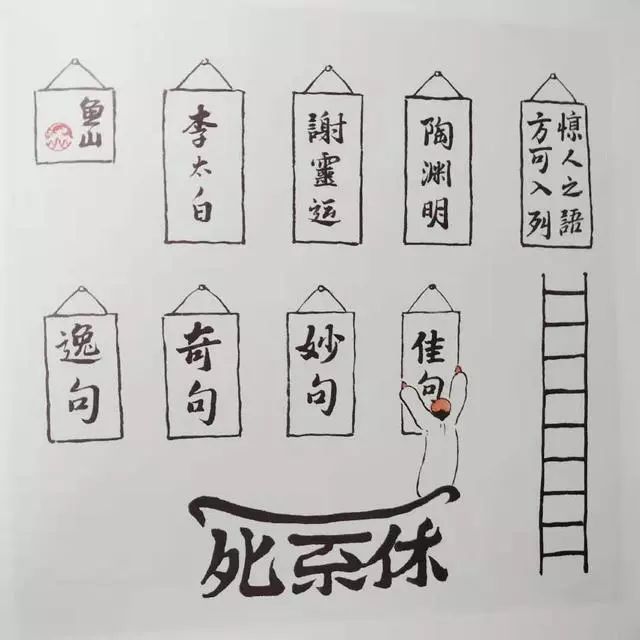 惊人之語
方可入列
陶渊明
謝靈運
李太白
魚山
佳句
妙句
奇句
逸句
死不休